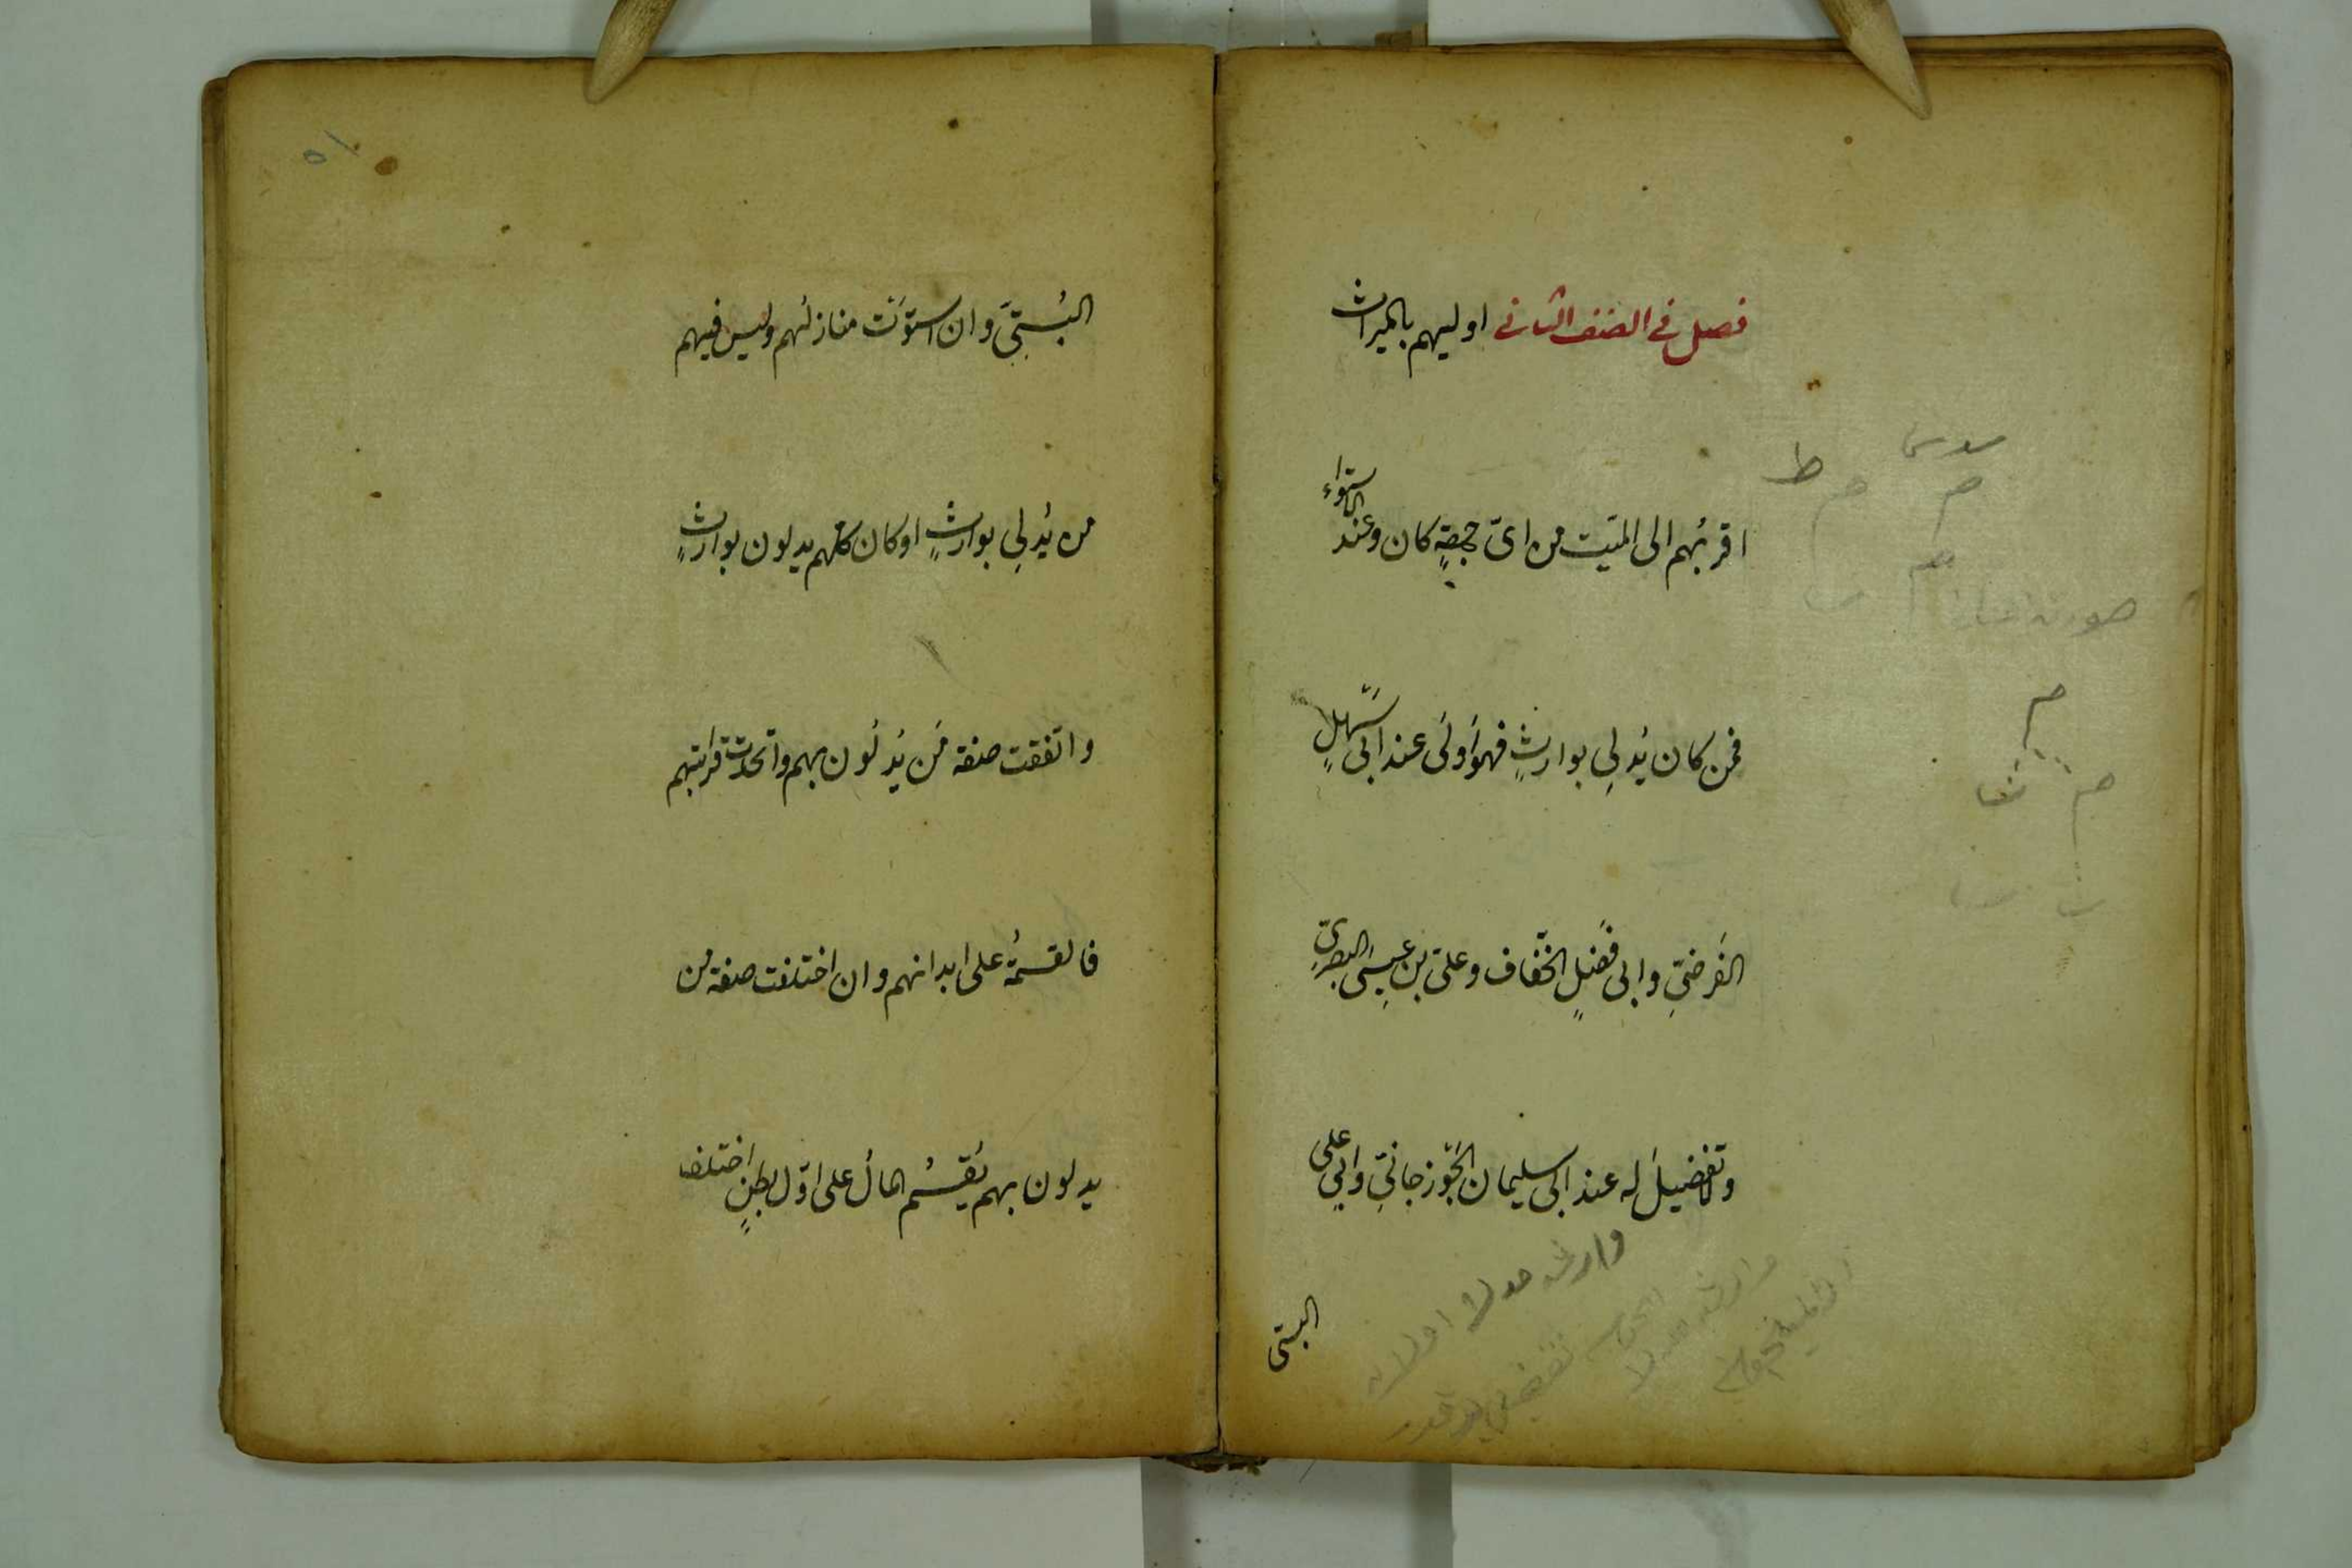 فصل في الصنف الثاني اوليهم بالميراث
اقربُهم الى الميّت من اىّ جهةٍ كان وعند الاستواء
فمن كان يُدلِي بوارثٍ فهو اَولَى عند ابى سَهلٍ
الفَرضىِّ وابى فَضلٍ الخفّاف وعلىّ بن عِيسَى البصرىِّ
ولا تفضيلَ له عند ابى سليمان الجُوزجانىِّ وابى على
البستى
البُستىّ وان استوَت منازلُهم وليس فيهم
من يُدلِي بوارثٍ او كان كلّهم يدلون بوارثٍ
واتفقت صفة مَن يُدلُون بهم واتّحدت قرابتهم
فالقسمةُ على ابدانهم وان اختلفت صفة من
يدلون بهم يُقسَمُ المالُ على اوّل بطنٍ اختلف
٥١